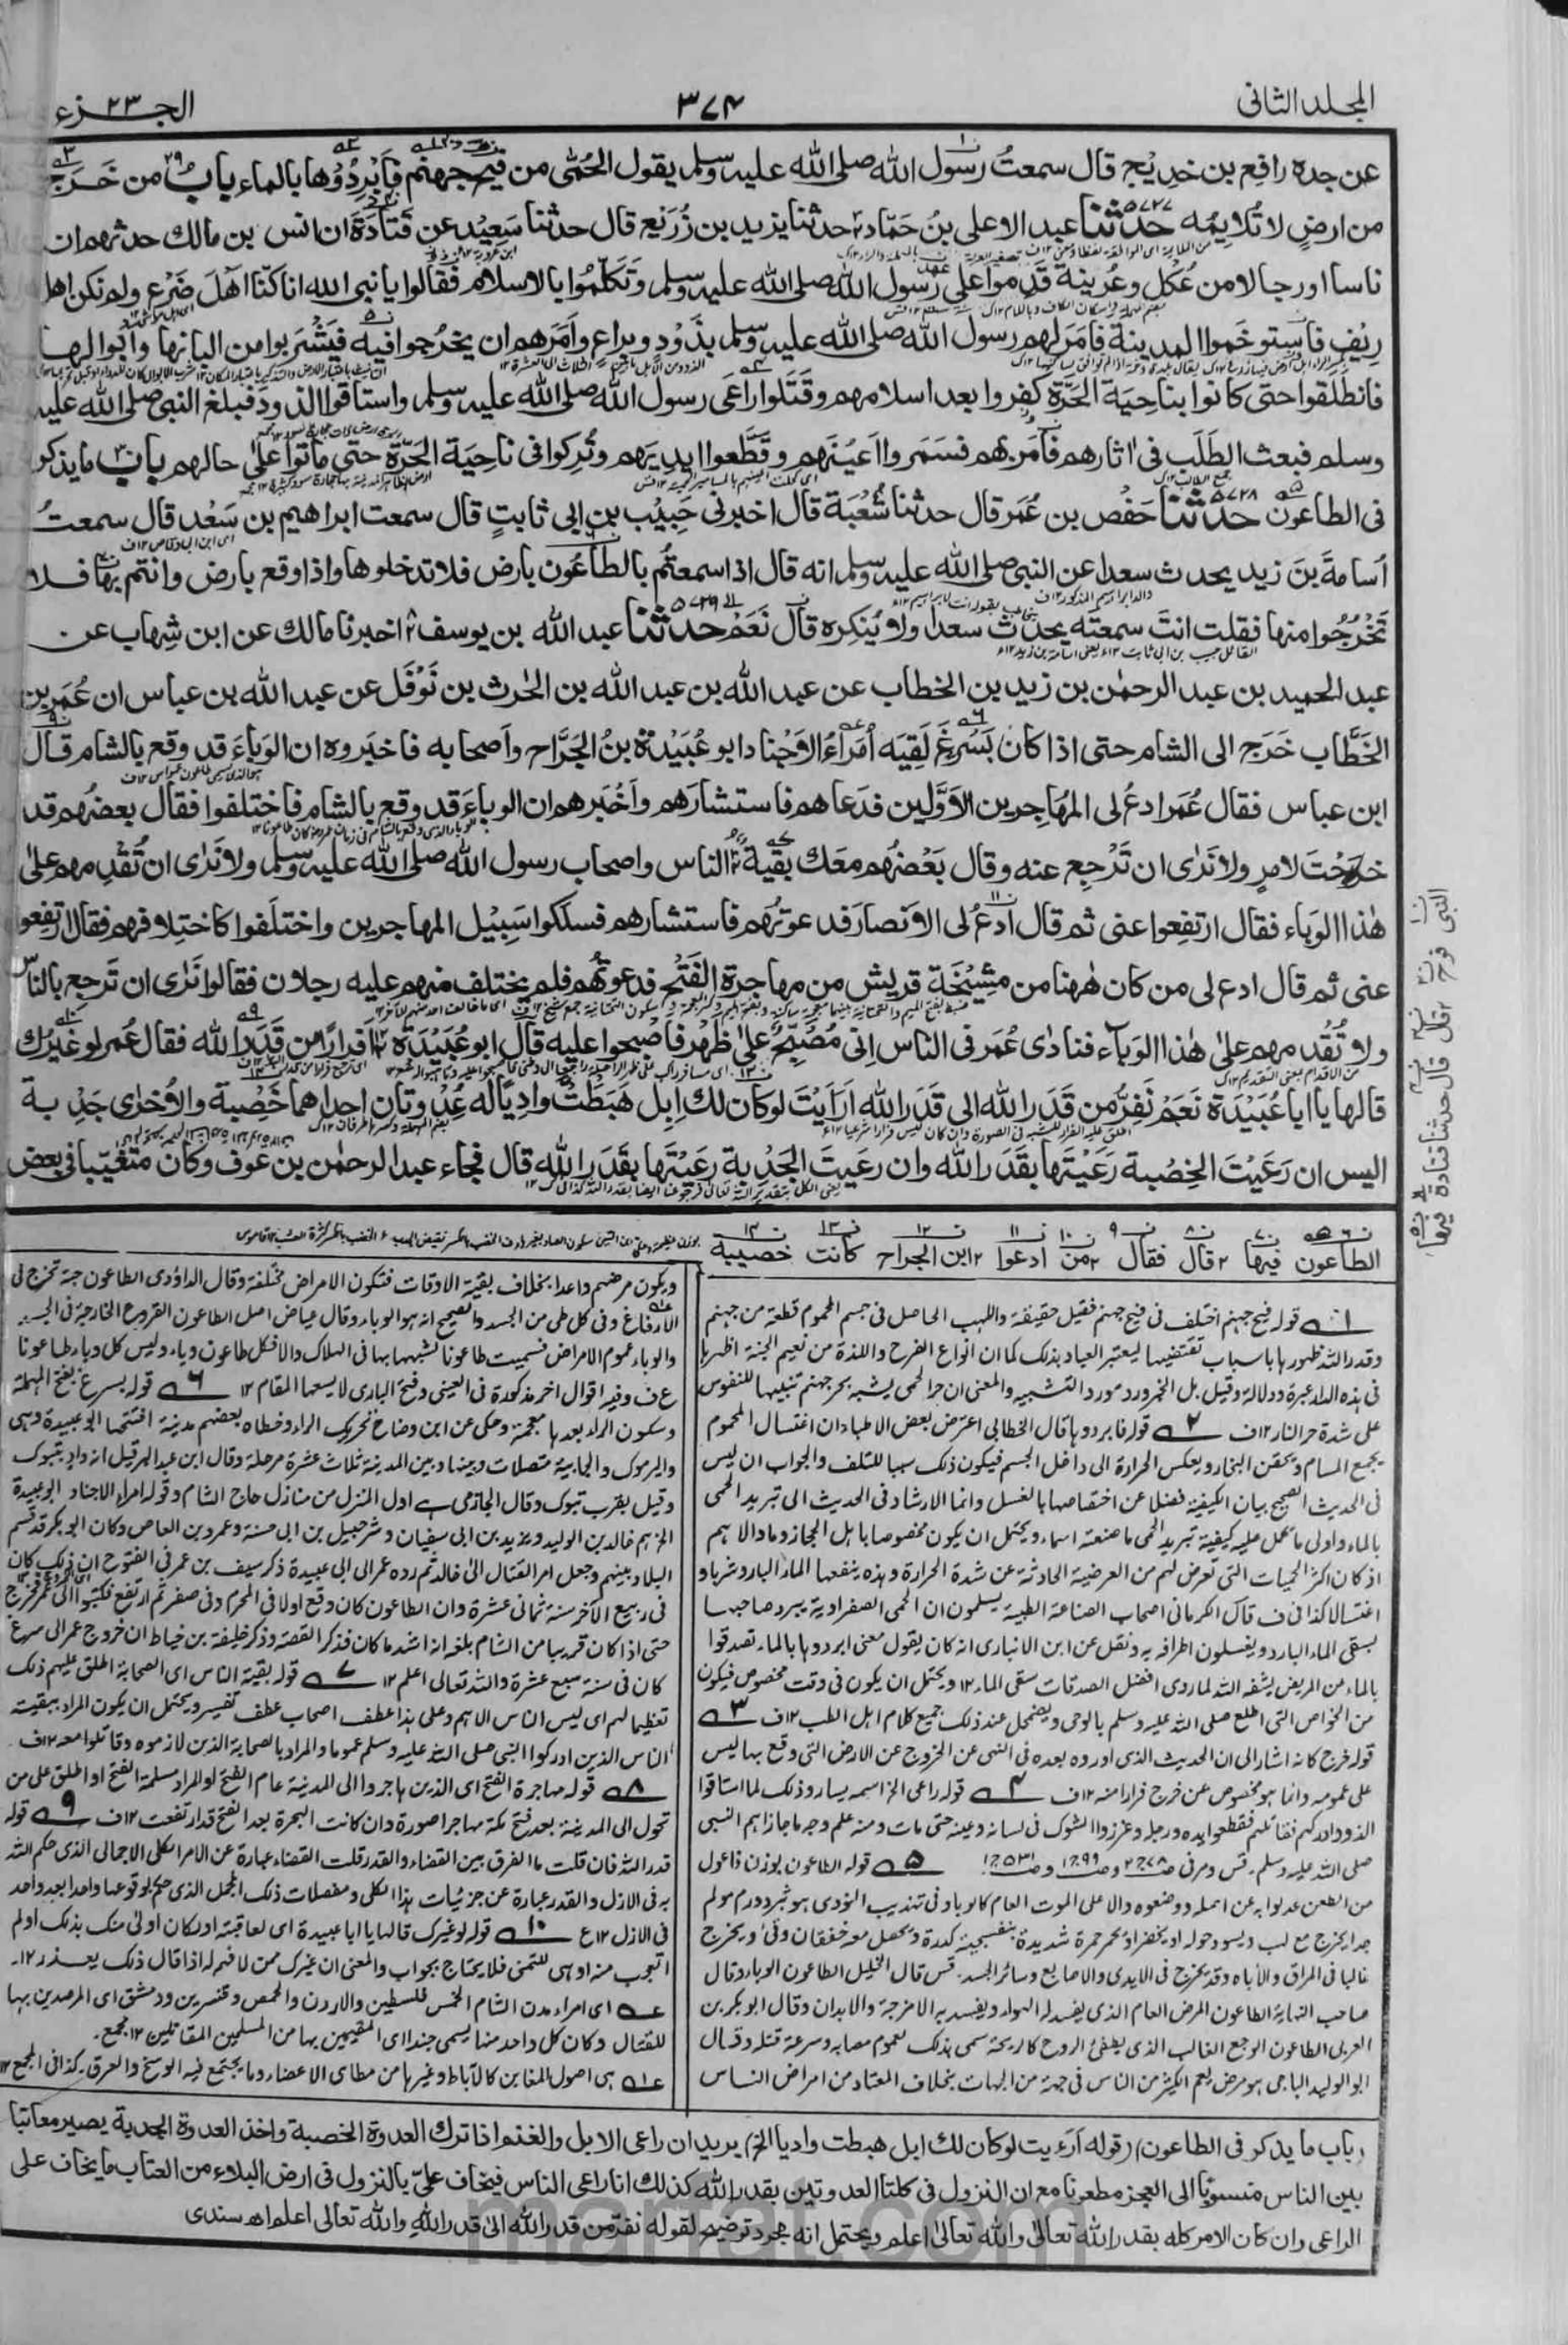 المجلد الثانی
٣٧٤
الجـــزء ٢٣
عن جده رافع بن خديج قال سمعتُ رسول الله صلى الله عليه وسلم يقول الحُمّٰى من فيح جهنم فَابْرِدُوْها بالماء باب من خَرَج
من ارضٍ لا تُلايِمُه حدثنا عبد الاعلى بنُ حَمّاد حدثنا يزيد بن زُرَيْع قال حدثنا سَعِيْد عن قَتَادَةَ ان انس بن مالك حدثهم ان
ناسا او رجالا من عُكل وعُرَينة قَدِموا على رسول الله صلى الله عليه وسلم وَتَكَلَّمُوا بالاسلام فقالوا يا نبى الله انا كنّا اَهْلَ ضَرْع ولم نكن اهل
رِيْفٍ فاستوخَموا المدينة فامَرلهم رسول الله صلى الله عليه وسلم بذَوْدٍ وبراعٍ وامَرهم ان يخرُجوا فيه فيَشْرَبوا من البانها وابوالها
فانطلقوا حتى كانوا بناحيَة الحَرَّة كفروا بعد اسلامهم وقَتَلوا راعى رسول الله صلى الله عليه وسلم واستاقوا الذود فبلغ النبى صلى الله عليه
وسلم فبعث الطَلَب فى اثارهم فامَر بهم فسَمَروا اَعيُنَهم وقَطَّعوا ايديَهم وتُركوا فى ناحيَة الحَرَّة حتى ماتوا على حالهم باب ما يذكر
فى الطاعون حدثنا حَفْص بن عُمَر قال حدثنا شُعْبَة قال اخبرنى حَبِيْب بن ابى ثابتٍ قال سمعت ابراهيم بن سَعْد قال سمعتُ
اُسامةَ بنَ زيد يحدث سعدا عن النبى صلى الله عليه وسلم انه قال اذا سمعتُم بالطاعُون بارض فلا تدخلوها واذا وقع بارض وانتم بها فلا
تَخْرُجُوا منها فقلت انتَ سمعته يحدث سعدا ولا يُنكِره قال نَعَمْ حدثنا عبد الله بن يوسف اخبرنا مالك عن ابن شِهاب عن
عبد الحميد بن عبد الرحمٰن بن زيد بن الخطاب عن عبد الله بن عبد الله بن الحٰرث بن نَوْفَل عن عبد الله بن عباس ان عُمَر بن
الخَطَّاب خَرَج الى الشام حتى اذا كان بسَرْغَ لَقِيَه اُمَرَاءُ الاَجْناد ابو عُبَيْدَة بنُ الجَرَّاح واَصحابه فاخبروه ان الوَباءَ قد وقع بالشام قال
ابن عباس فقال عُمَر ادعُ لى المهاجرين الاَوَّلين فدَعاهم فاستشارَهم واَخْبَرهم ان الوباءَ قد وقع بالشام فاختلفوا فقال بعضُهم قد
خَرَجْتَ لامرٍ ولا نَرٰى ان تَرْجِع عنه وقال بَعْضُهم معَك بقيّة الناس واصحاب رسول الله صلى الله عليه وسلم ولا نَرٰى ان تُقْدِمهم علىٰ
هٰذا الوَباء فقال ارتفِعوا عنى ثم قال ادعُ لى الاَنصارَ فدعوتُهم فاستشارهم فسلكوا سَبِيْل المهاجرين واختلَفوا كاختِلافهم فقال ارتفِعوا
عنى ثم قال ادع لى من كان هٰهنا من مِشْيَخَة قريش من مهاجرة الفَتْح فدعوتُهم فلم يختلف منهم عليه رجلان فقالوا نَرٰى ان تَرجع بالناس
ولا تُقْدِمهم علىٰ هٰذا الوَباء فنادٰى عُمَر فى الناس اِنى مُصْبِحٌ علىٰ ظَهْر فاَصْبِحوا عليه قال ابو عُبَيْدَة افرارًا من قَدَر الله فقال عُمر لو غيرُك
قالها يا ابا عُبَيْدَة نَعَم نَفِرُّ من قَدَر الله الى قَدَر الله اَرَاَيْتَ لوكان لك اِبِل هَبَطَتْ واديًا له عُدْوتان احداهما خَصْبة والاُخرٰى جَدْبة
اليس ان رَعَيْتَ الخِصْبة رَعَيْتَها بقَدَر الله وان رعَيتَ الجَدْبة رَعَيْتَها بقَدَر الله قال فجاء عبد الرحمٰن بن عَوْف وكان متغيّبا فى بعض
الطاعون فيها قال فقال من ادعوا ابن الجراح كانت خصيبة
قوله فيح جهنم اختلف فى فيح جهنم فقيل حقيقة واللهب الحاصل فى جسم المحموم قطعة من جهنم
وقدر الله ظهورها باسباب تقتضيها ليعتبر العباد بذلك كما ان انواع الفرح واللذة من نعيم الجنة اظهرها
فى هذه الدار عبرة ودلالة وقيل بل الخبر ورد مورد التشبيه والمعنى ان حر الحمى يشبه بحر جهنم تنبيها للنفوس
على شدة حر النار ١٢ف ٢ قوله فابردوها قال الخطابى اعترض بعض الاطباء ان اغتسال المحموم
يجمع المسام ويحقن البخار ويعكس الحرارة الى داخل الجسم فيكون ذلك سببا للتلف والجواب ان ليس
فى الحديث الصحيح بيان الكيفية فضلا عن اختصاصها بالغسل وانما الارشاد فى الحديث الى تبريد الحمى
بالماء واولى ما حمل عليه كيفية تبريد الحمى ما صنعته اسماء ويحتمل ان يكون مخصوصا باهل الحجاز وما والاهم
اذ كان اكثر الحميات التى تعرض لهم من العرضية الحادثة عن شدة الحرارة وهذه ينفعها الماء البارد شربا و
اغتسالا كذا فى ف قال الكرمانى اصحاب الصناعة الطبية يسلمون ان الحمى الصفراوية يبرد صاحبها
بسقى الماء البارد ويغسلون اطرافه به ونقل عن ابن الانبارى انه كان يقول معنى ابردوها بالماء تصدقوا
بالماء عن المريض يشفه الله لما روى افضل الصدقات سقى الماء ١٢ ويحتمل ان يكون فى وقت مخصوص فيكون
من الخواص التى اطلع صلى الله عليه وسلم بالوحى ويضمحل عند ذلك جميع كلام اهل الطب ١٢ف ٣
قوله خرج كانه اشار الى ان الحديث الذى اورده بعده فى النهى عن الخروج عن الارض التى وقع بها ليس
على عمومه وانما هو مخصوص عن خرج فرارا منه ١٢ف ٤ قوله راعى الخ اسمه يسار وذلك لما استاقوا
الذود ادركهم فقاتلهم فقطعوا يده ورجله وغرزوا الشوك فى لسانه وعينه حتى مات ومنه علم وجه ما جازاهم النبى
صلى الله عليه وسلم ٥ قوله الطاعون بوزن فاعول
من الطعن عدلوا به عن اصله ووضعوه دالا على الموت العام كالوباء وفى تهذيب النووى هو بثر وورم مولم
جدا يخرج مع لهب ويسود حوله او يخضر او يحمر حمرة شديدة بنفسجية كدرة ويحصل معه خفقان وقئ ويخرج
غالبا فى المراق والآباط وقد يخرج فى الايدى والاصابع وسائر الجسد. قس قال الخليل الطاعون الوباء وقال
صاحب النهاية الطاعون المرض العام الذى يفسد له الهواء ويفسد به الامزجة والابدان وقال ابو بكر بن
العربى الطاعون الوجع الغالب الذى يطفئ الروح كالذبحة سمى بذلك لعموم مصابه وسرعة قتله وقال
ابو الوليد الباجى هو مرض يعم الكثير من الناس فى جهة من الجهات بخلاف المعتاد من امراض الناس
ويكون مرضهم واحدا بخلاف بقية الاوقات فتكون الامراض مختلفة وقال الداؤدى الطاعون حبة تخرج فى
الارفاغ وفى كل طى من الجسد والصحيح انه هو الوباء وقال عياض اصل الطاعون القروح الخارجة فى الجسد
والوباء عموم الامراض فسميت طاعونا لشبهها بها فى الهلاك والا فكل طاعون وباء وليس كل وباء طاعونا
ع ف وفيه اقوال اخر مذكورة فى العينى وفتح البارى لا يسعها المقام ١٢ ٦ قوله بسرغ بفتح المهملة
وسكون الراء بعدها معجمة وحكى عن ابن وضاح تحريك الراء وخطاه بعضهم مدينة افتتحها ابو عبيدة وهى
واليرموك والجابية متصلات وبينها وبين المدينة ثلاث عشرة مرحلة وقال ابن عبد البر قيل انه واد بتبوك
وقيل بقرب تبوك وقال الحازمى هى اول المنزل من منازل حاج الشام وقوله امراء الاجناد ابو عبيدة
الخ هم خالد بن الوليد ويزيد بن ابى سفيان وشرحبيل بن ابى حسنة وعمرو بن العاص وكان ابو بكر قد قسم
البلاد بينهم وجعل امر القتال الى خالد ثم رده عمر الى ابى عبيدة ذكر سيف بن عمر فى الفتوح ان ذلك كان
فى ربيع الآخر سنة ثمانى عشرة وان الطاعون كان وقع اولا فى المحرم وفى صفر ثم ارتفع فكتبوا الى عمر فخرج
حتى اذا كان قريبا من الشام بلغه انه اشد ما كان فذكر القصة وذكر خليفة بن خياط ان خروج عمر الى سرغ
كان فى سنة سبع عشرة والله تعالى اعلم ١٢ ٧ قوله بقية الناس اى الصحابة اطلق عليهم ذلك
تعظيما لهم اى ليس الناس الا هم وعلى هذا عطف اصحاب عطف تفسير ويحتمل ان يكون المراد ببقية
الناس الذين ادركوا النبى صلى الله عليه وسلم عموما والمراد بالصحابة الذين لازموه وقاتلوا معه ١٢ف
٨ قوله مهاجرة الفتح اى الذين هاجروا الى المدينة عام الفتح او المراد مسلمة الفتح او اطلق على من
تحول الى المدينة بعد فتح مكة مهاجرا صورة وان كانت الهجرة بعد الفتح قد ارتفعت ١٢ف ٩ قوله
قدر الله فان قلت ما الفرق بين القضاء والقدر قلت القضاء عبارة عن الامر الكلى الاجمالى الذى حكم الله
به فى الازل والقدر عبارة عن جزئيات هذا الكلى ومفصلات ذلك المجمل الذى حكم بوقوعها واحدا بعد واحد
فى الازل ١٢ع ١٠ قوله لو غيرك قالها يا ابا عبيدة اى لعاقبته او لكان اولى منك بذلك او لم
اتعجب منه او هى للتمنى فلا يحتاج بجواب والمعنى ان غيرك ممن لا فهم له اذا قال ذلك يعذر ١٢.
اى امراء مدن الشام الخمس فلسطين والاردن والحمص وقنسرين ودمشق اى المرصدين بها
للقتال وكان كل واحد منها يسمى جندا اى المقيمين بها من المسلمين المقاتلين ١٢ مجمع.
هى اصول المغابن كالآباط وغيرها من مطاى الاعضاء وما يجتمع فيه الوسخ والعرق. كذا فى المجمع ١٢
(باب ما يذكر فى الطاعون) (قوله اَرَءيت لوكان لك ابل هبطت واديا الخ) يريد ان راعى الابل والغنم اذا ترك العدوة الخصبة واخذ العدوة الجدبة يصير معاتبا
بين الناس منسوبًا الى العجز مطعونا مع ان النزول فى كلتا العدوتين بقدر الله كذلك انا راعى الناس فيخاف علىّ بالنزول فى ارض البلاء من العتاب ما يخاف على
الراعى وان كان الامر كله بقدر الله تعالىٰ والله تعالىٰ اعلم ويحتمل انه مجرد توضيح لقوله نفر من قدر الله الىٰ قدر الله والله تعالى اعلم اهـ سندى
marfat.com